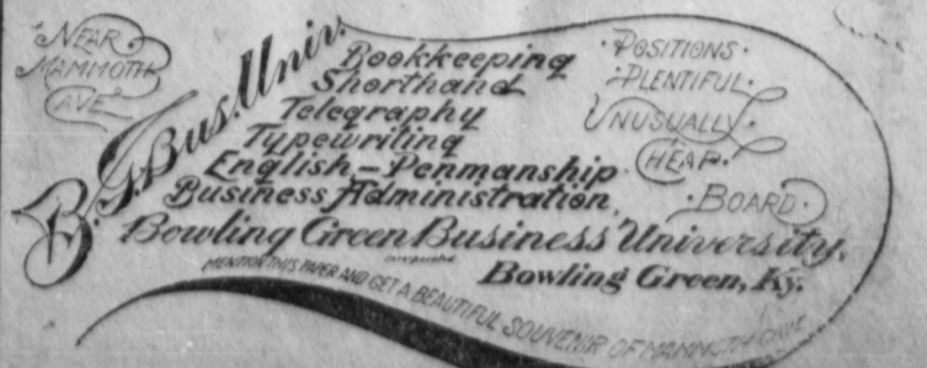 Near
Mammoth
Cave
B. G. Bus. Univ.
Bookkeeping
Shorthand
Telegraphy
Typewriting
English – Penmanship
Business Administration,
Positions
Plentiful
Unusually
Cheap
Board
Bowling Green Business University,
Incorporated
Bowling Green, Ky.
MENTION THIS PAPER AND GET A BEAUTIFUL SOUVENIR OF MAMMOTH CAVE